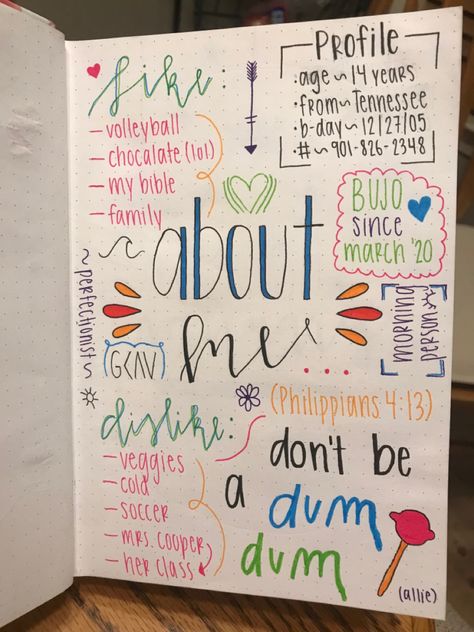 like:
– volleyball
– chocalate (lol)
– my bible
– family
Profile
• age ~ 14 years
• from ~ Tennessee
• b-day ~ 12/27/05
• # ~ 901-826-2348
BUJO
since
march '20
about
me...
~ perfectionist ~
G<∧∨
morning
person
dislike:
– veggies
– cold
– soccer
– mrs. cooper
– her class
(Philippians 4:13)
don't be
a dum
dum
(allie)